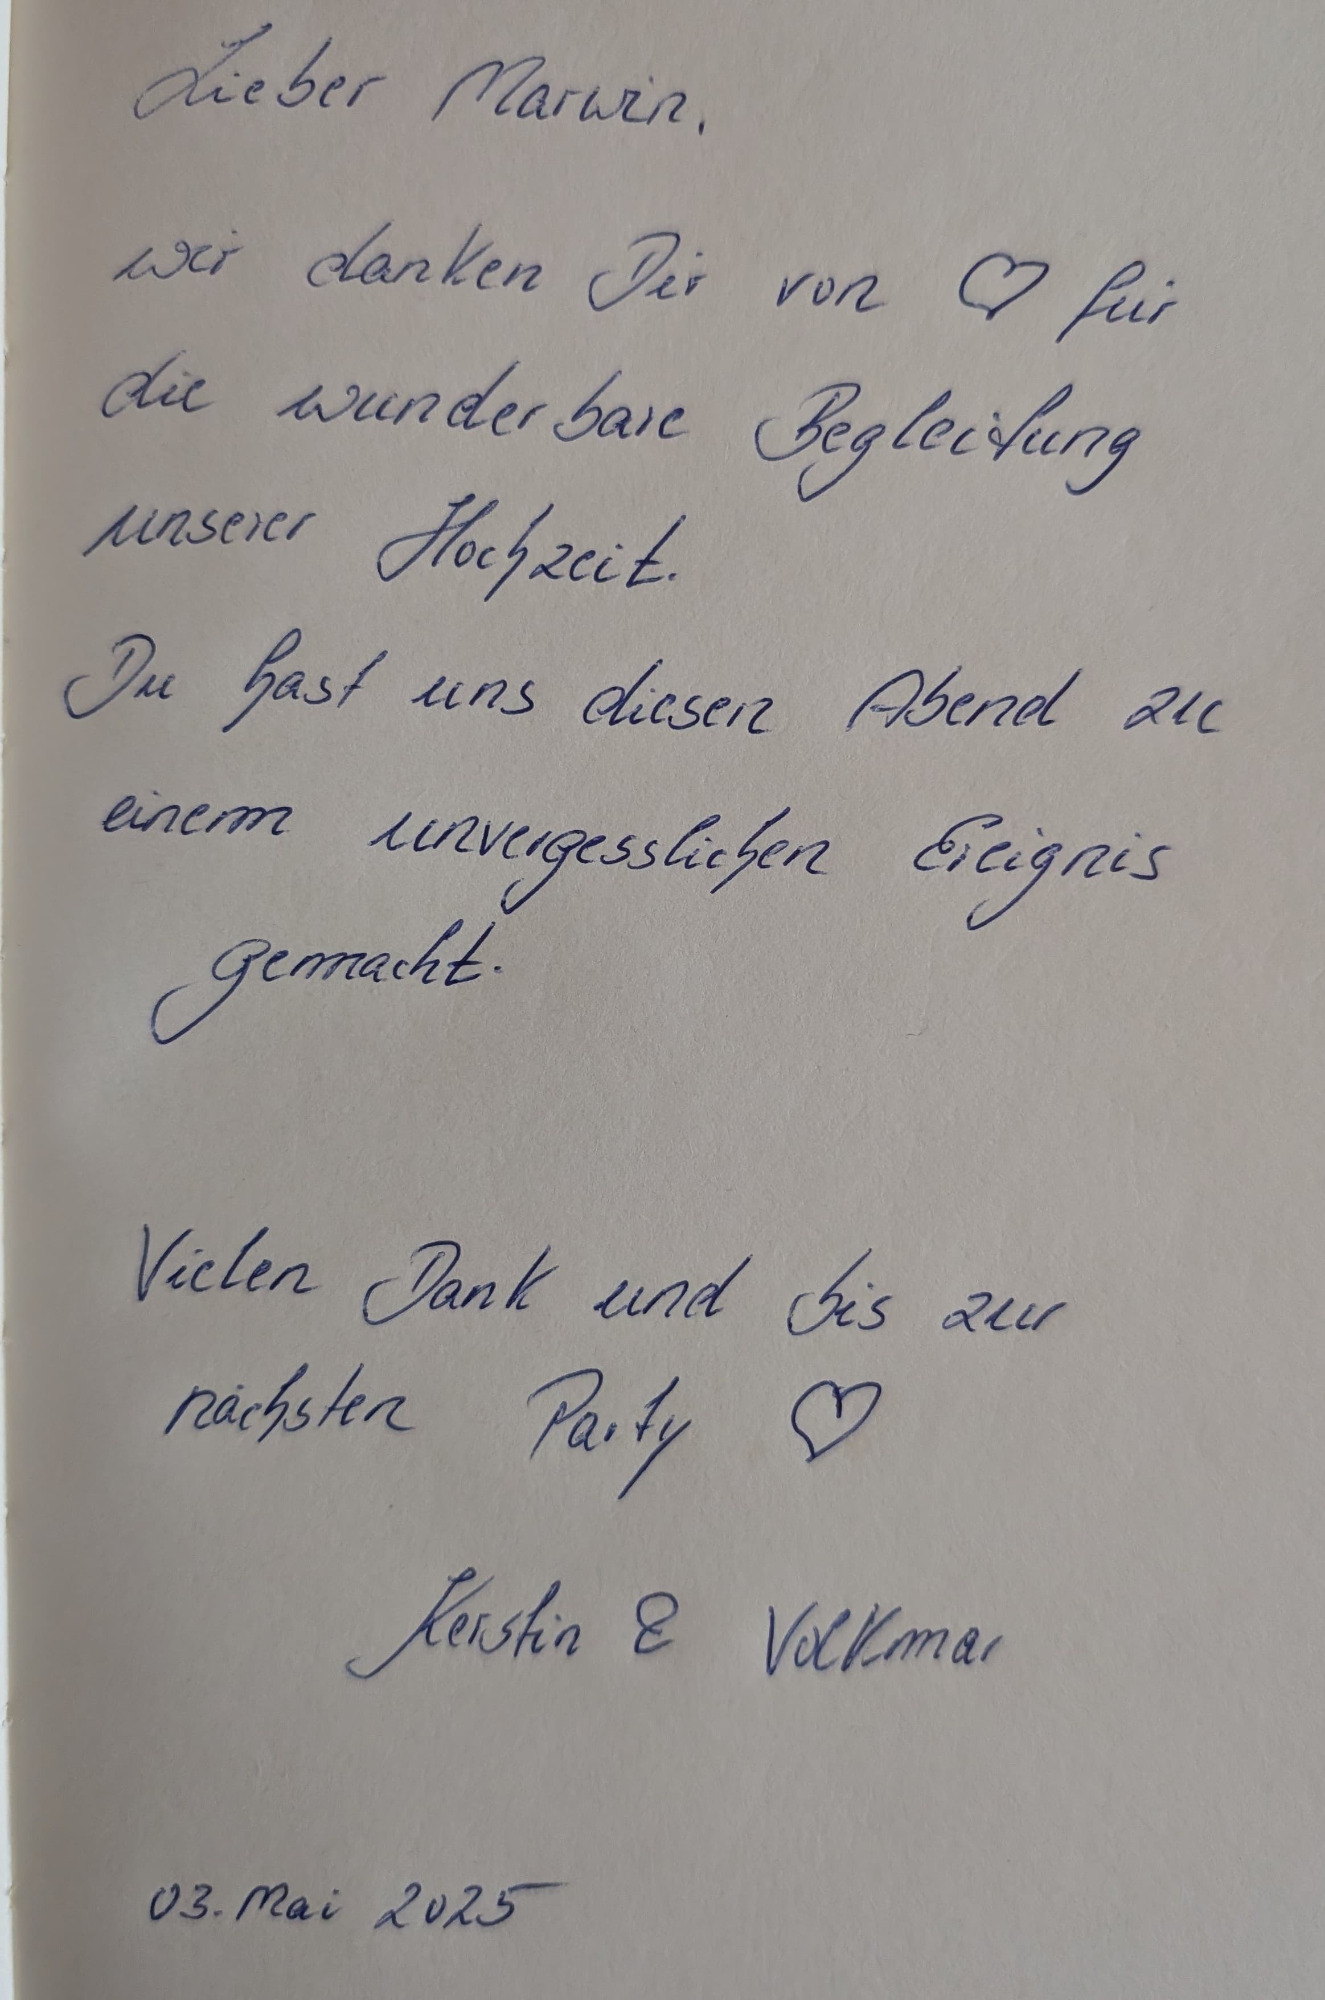 Lieber Marwin,
wir danken Dir von ♡ für
die wunderbare Begleitung
unserer Hochzeit.
Du hast uns diesen Abend zu
einem unvergesslichen Ereignis
gemacht.
Vielen Dank und bis zur
nächsten Party ♡
Kerstin & Volkmar
03. Mai 2025